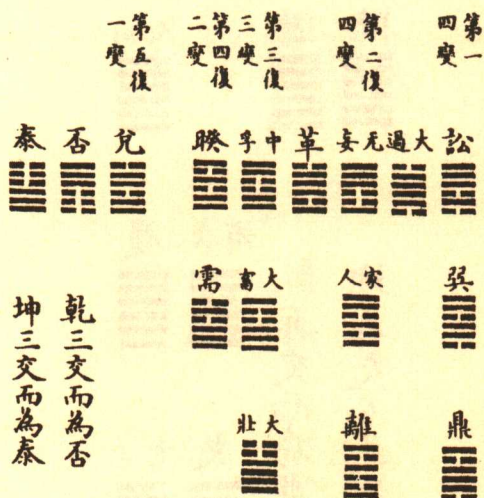 第一
四變
第二復
四變
第三復
三變
第四復
二變
第五復
一變
訟
大過
无妄
革
中孚
暌
兌
否
泰
巽
家人
大畜
需
鼎
離
大壯
乾三交而為否
坤三交而為泰